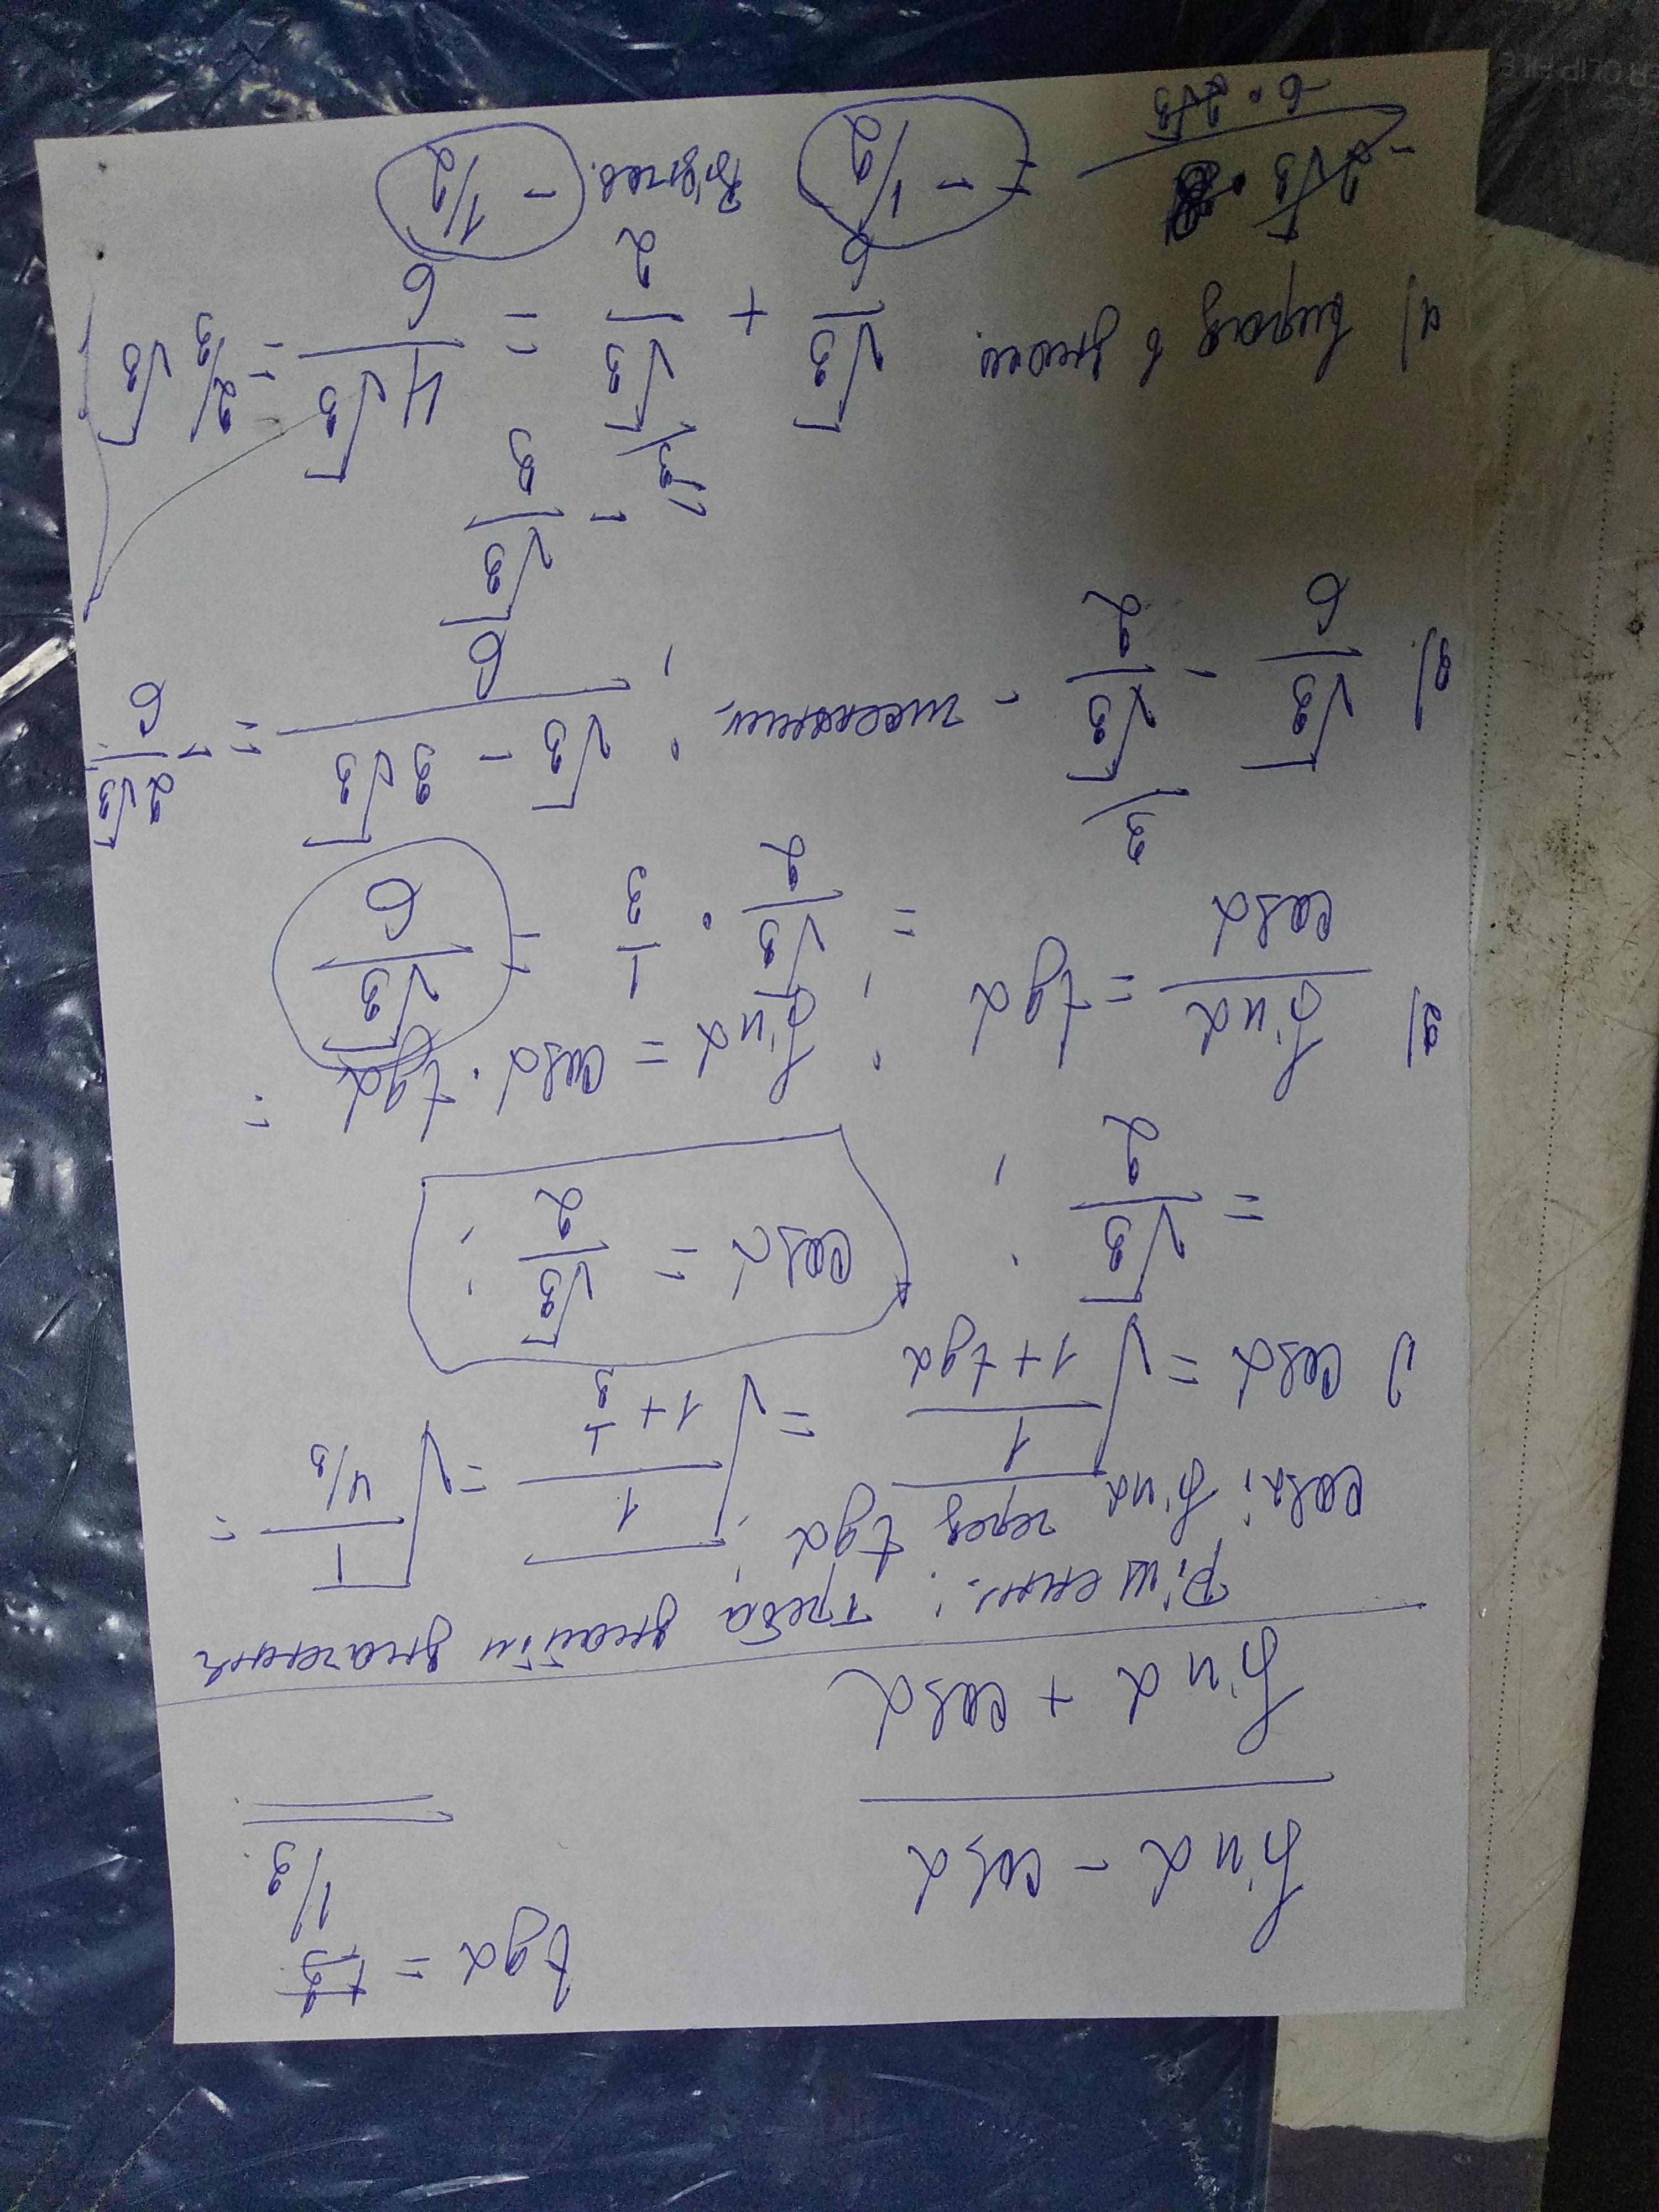 tgα = 1/3
sinα - cosα
sinα + cosα
Рішення: треба знайти значення
cosα i sinα через tgα;
1) cosα = √1/1+tgα = √1/1+1/3 = √1/4/3 =
= √3/2 ; cosα = √3/2 ;
2) sinα/cosα = tgα ; sinα = cosα · tgα =
= √3/2 · 1/3 = √3/6
3) √3/6 - √3/2 /3 - чисельник ; √3 - 3√3/6 = - 2√3/6
= - √3/3
4) вираз в знам.
√3/6 + √3/2 /3 = 4√3/6 = 2/3 √3
- 2√3 · 6
= - 1/2
Відпов. - 1/2